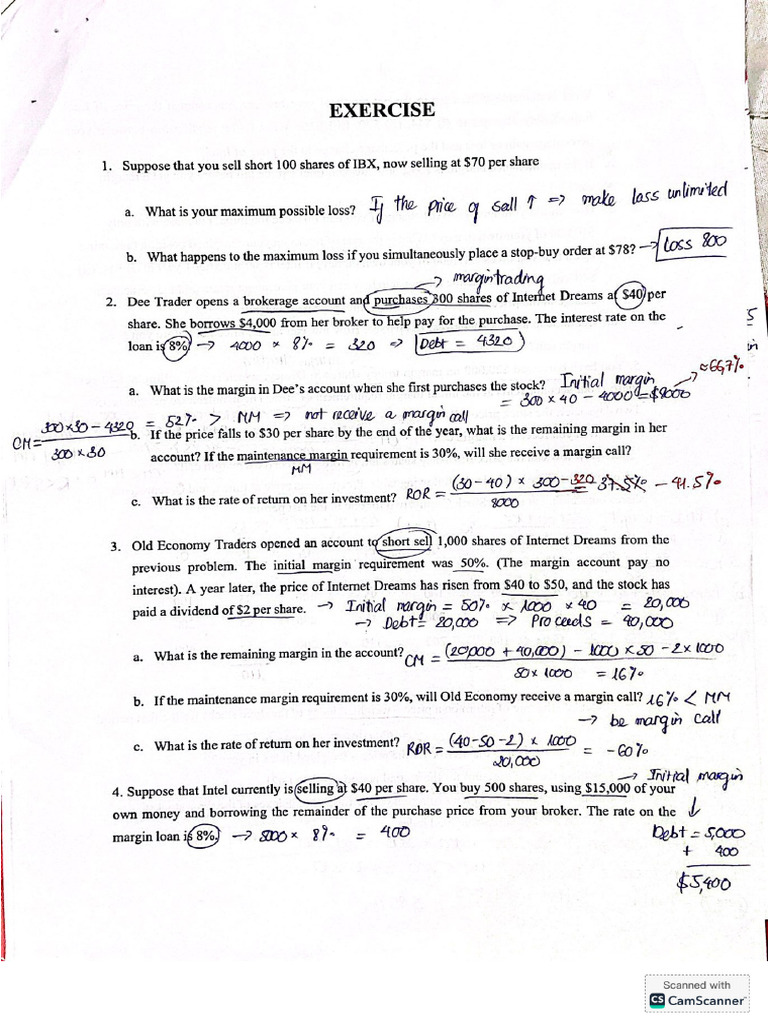 EXERCISE
1. Suppose that you sell short 100 shares of IBX, now selling at $70 per share
a. What is your maximum possible loss? If the price of sell ↑ => make loss unlimited
b. What happens to the maximum loss if you simultaneously place a stop-buy order at $78? → Loss 800
→ margin trading
2. Dee Trader opens a brokerage account and purchases 300 shares of Internet Dreams at $40 per
share. She borrows $4,000 from her broker to help pay for the purchase. The interest rate on the
loan is 8%. → 4000 × 8% = 320 => Debt = 4320
≈ 66,7%
a. What is the margin in Dee's account when she first purchases the stock? Initial margin
= 300 × 40 - 4000 = $8000
CM = 300 × 30 - 4320 / 300 × 30 = 52% > MM => not receive a margin call
b. If the price falls to $30 per share by the end of the year, what is the remaining margin in her
account? If the maintenance margin requirement is 30%, will she receive a margin call?
MM
c. What is the rate of return on her investment? ROR = (30 - 40) × 300 - 320 / 8000 = 37.5% - 41.5%
3. Old Economy Traders opened an account to short sell 1,000 shares of Internet Dreams from the
previous problem. The initial margin requirement was 50%. (The margin account pay no
interest). A year later, the price of Internet Dreams has risen from $40 to $50, and the stock has
paid a dividend of $2 per share. → Initial margin = 50% × 1000 × 40 = 20,000
→ Debt = 20,000 => Proceeds = 40,000
a. What is the remaining margin in the account? CM = (20,000 + 40,000) - 1000 × 50 - 2 × 1000 / 50 × 1000 = 16%
b. If the maintenance margin requirement is 30%, will Old Economy receive a margin call? 16% < MM
→ be margin call
c. What is the rate of return on her investment? ROR = (40 - 50 - 2) × 1000 / 20,000 = -60%
→ Initial margin
4. Suppose that Intel currently is selling at $40 per share. You buy 500 shares, using $15,000 of your
own money and borrowing the remainder of the purchase price from your broker. The rate on the
margin loan is 8%. → 5000 × 8% = 400
Debt = 5,000
+ 400
$5,400
Scanned with
CS CamScanner